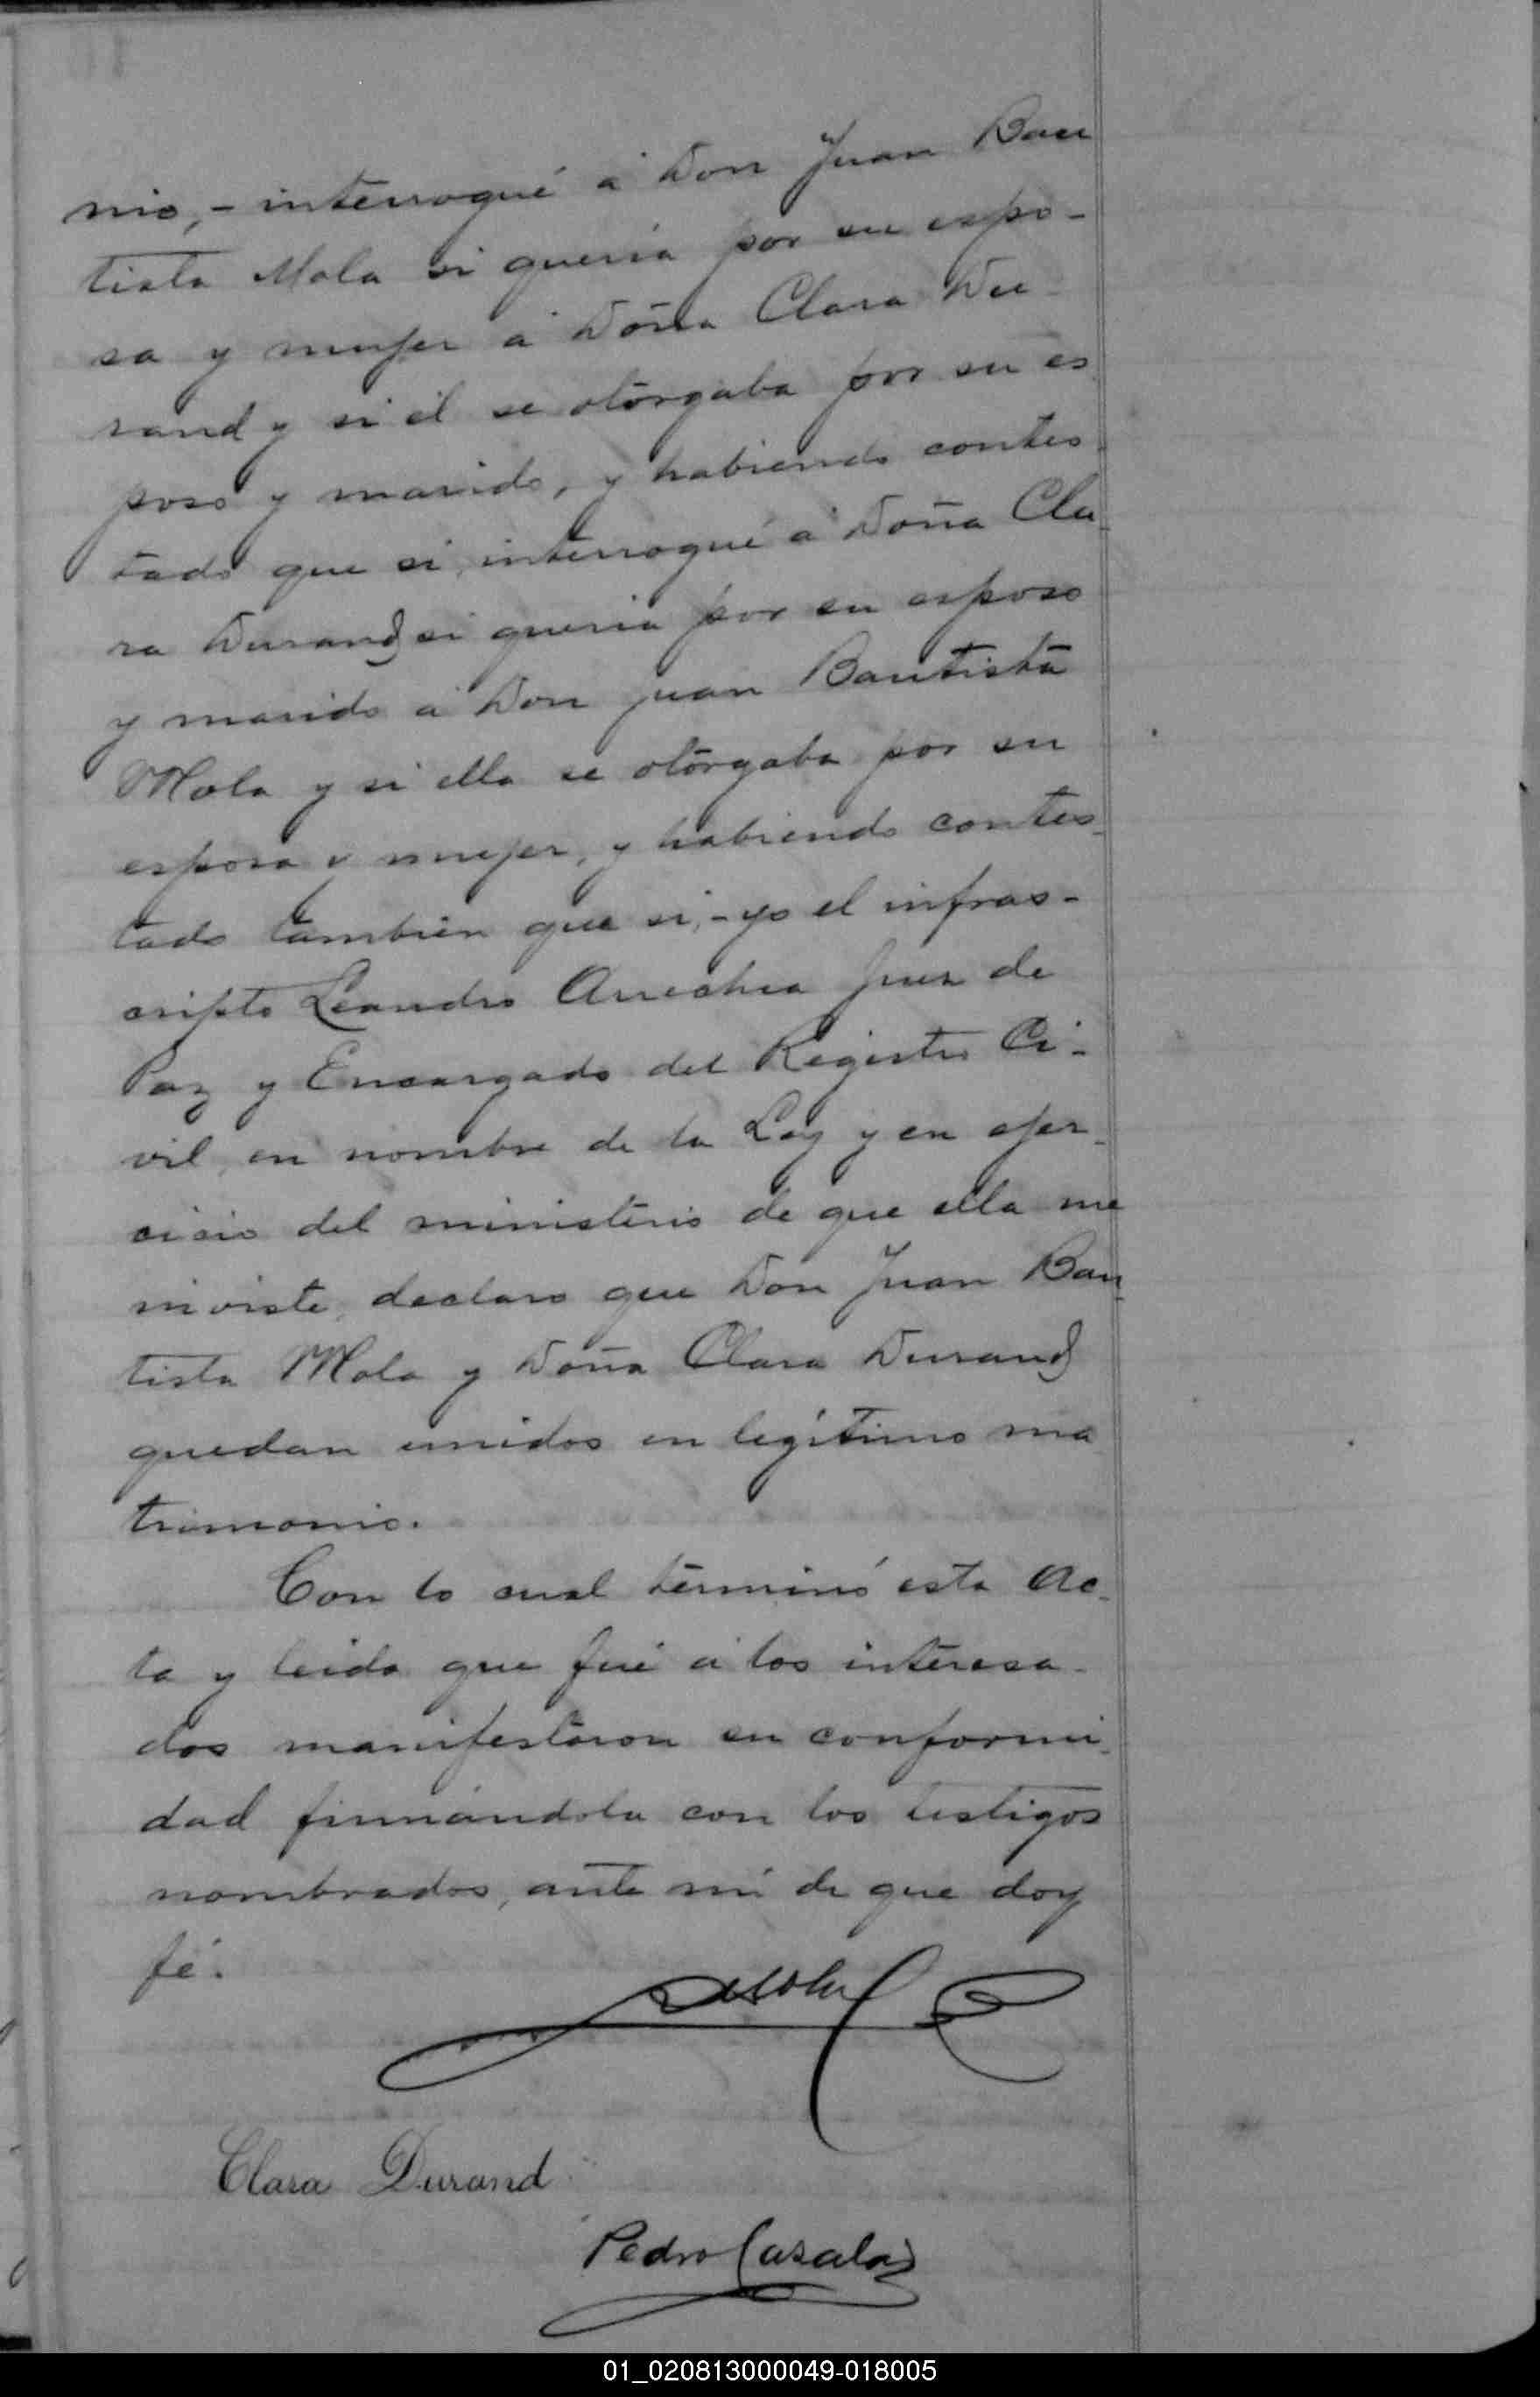 nio,- interrogué á Don Juan Bau
tista Mola si queria por su espo-
sa y mujer á Doña Clara Du-
rand y si él se otorgaba por su es
poso y marido, y habiendo contes
tado que si, interrogué á Doña Cla
ra Durand si queria por su esposo
y marido á Don Juan Bautista
Mola y si ella se otorgaba por su
esposa y mujer, y habiendo contes
tado tambien que si,- yo el infras-
cripto Leandro Arrechea Juez de
Paz y Encargado del Registro Ci-
vil, en nombre de la Ley y en ejer-
cicio del ministerio de que ella me
inviste, declaro que Don Juan Bau
tista Mola y Doña Clara Durand
quedan unidos en legítimo ma
trimonio.
Con lo cual terminó esta Ac-
ta y leida que fué á los interesa-
dos manifestaron su conformi-
dad firmándola con los testigos
nombrados, ante mí de que doy
fé.
Mola
Clara Durand
Pedro Casalas
01_020813000049-018005